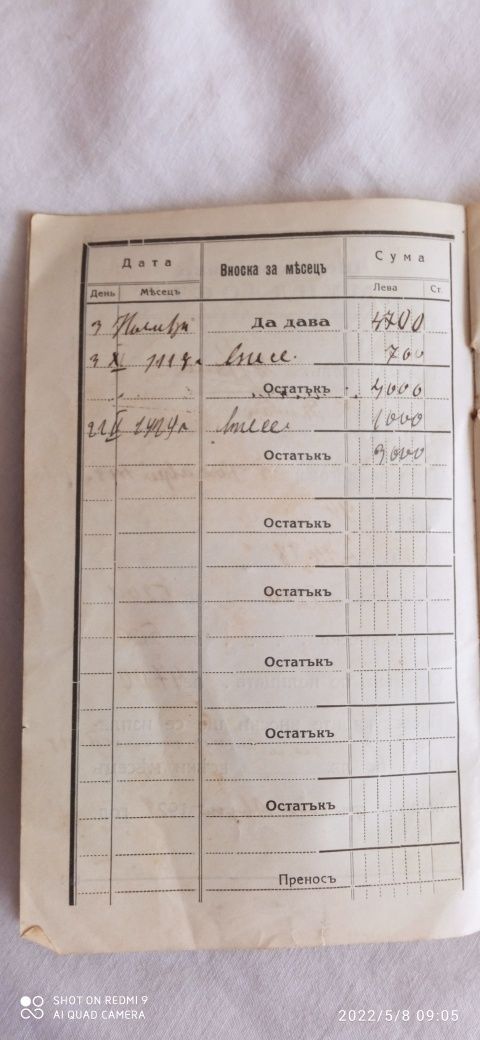 Дата Вноска за мѣсецъ Сума
День Мѣсецъ Лева Ст.
3 Да дава 4700
3 XI внесе. 700
Остатъкъ 4000
внесе. 1000
Остатъкъ 3000
Остатъкъ
Остатъкъ
Остатъкъ
Остатъкъ
Остатъкъ
Преносъ
SHOT ON REDMI 9
AI QUAD CAMERA
2022/5/8 09:05